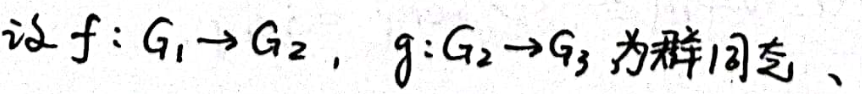 设 f: G₁→G₂, g:G₂→G₃ 为群同态、